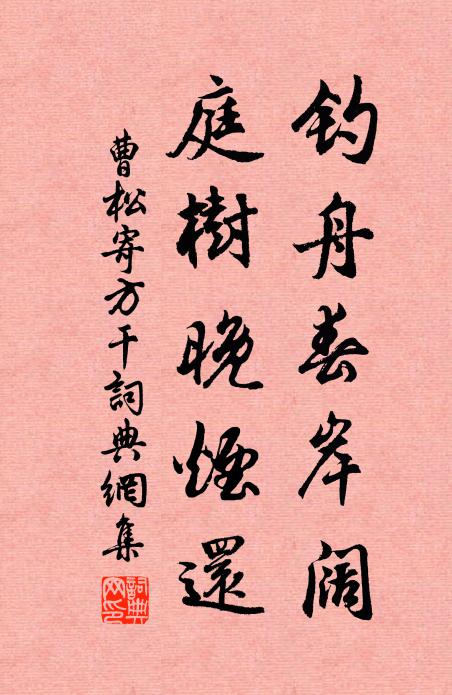 钓舟春岸阔
庭樹晚煙還
曹松寄方干詞典網集
詞典网印